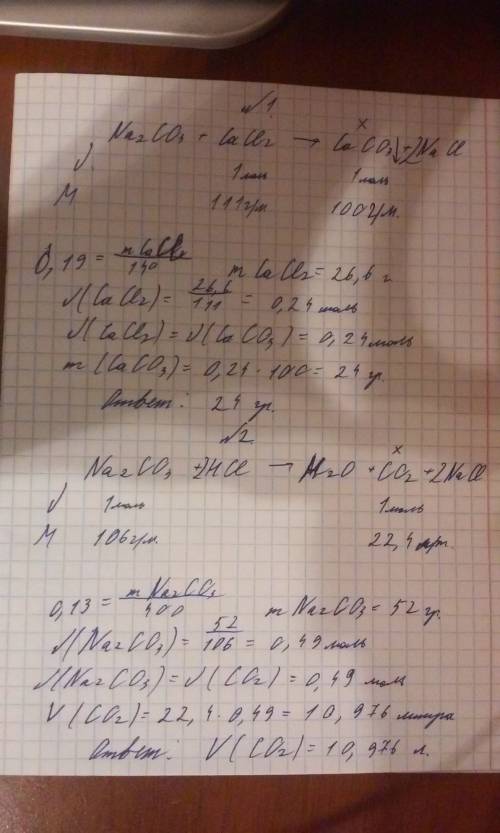 №1
x
Na2CO3 + CaCl2 → CaCO3↓+2NaCl
ν 1моль 1моль
M 111г/м. 100г/м.
0,19 = m CaCl2/140 m CaCl2 = 26,6 г.
ν(CaCl2) = 26,6/111 = 0,24 моль
ν(CaCl2) = ν(CaCO3) = 0,24 моль
m (CaCO3) = 0,24 · 100 = 24 гр.
Ответ: 24 гр.
№2.
x
Na2CO3 +2HCl → H2O + CO2 +2NaCl
ν 1моль 1моль
M 106г/м. 22,4
0,13 = m Na2CO3/400 m Na2CO3 = 52 гр.
ν(Na2CO3) = 52/106 = 0,49 моль
ν(Na2CO3) = ν(CO2) = 0,49 моль
V(CO2) = 22,4 · 0,49 = 10,976 литра
Ответ: V(CO2) = 10,976 л.